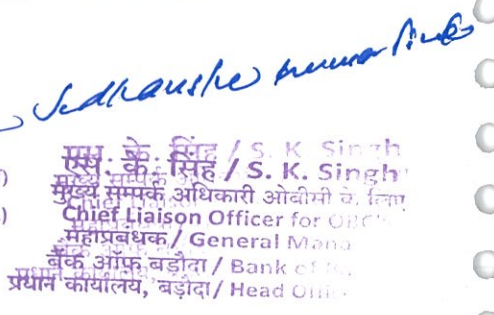 Sudhanshu Kumar Singh
एस. के. सिंह / S. K. Singh
मुख्य सम्पर्क अधिकारी ओबीसी के लिए
Chief Liaison Officer for OBC
महाप्रबंधक / General Mana
बैंक ऑफ़ बड़ौदा / Bank of
प्रधान कार्यालय, बड़ौदा / Head Offi